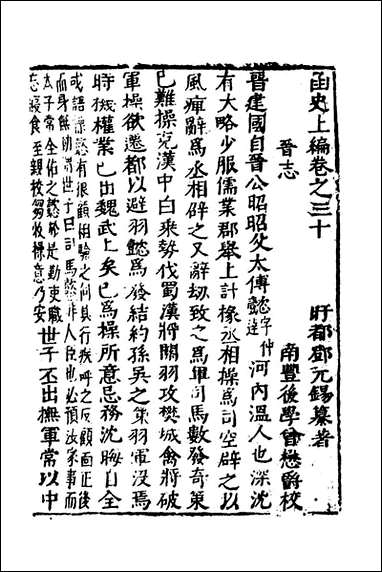 函史上編卷之三十
盱郡鄧元錫纂著
晉志
南豐後學曾懋爵校
晉建國自晉公昭昭父太傅懿字仲達河內溫人也深沈
有大略少服儒業郡舉上計掾丞相操爲司空辟之以
風痺辭爲丞相辟之又辭刼致之爲軍司馬數發奇策
已難操克漢中白乘勢伐蜀漢將關羽攻樊城禽將破
軍操欲遷都以避羽懿爲發結約孫吳之策羽軍沒焉
時機權業已出魏武上矣已爲操所意忌務沈晦自全
或語操懿有狼顧相驗之何其行疾呼之反顧面正後
而身無動謂世子曰司馬懿非人臣也必預汝家事而
太子常全佑之懿於是勤吏職
忘寢食至親校芻牧操意乃安
世子丕出撫軍常以中